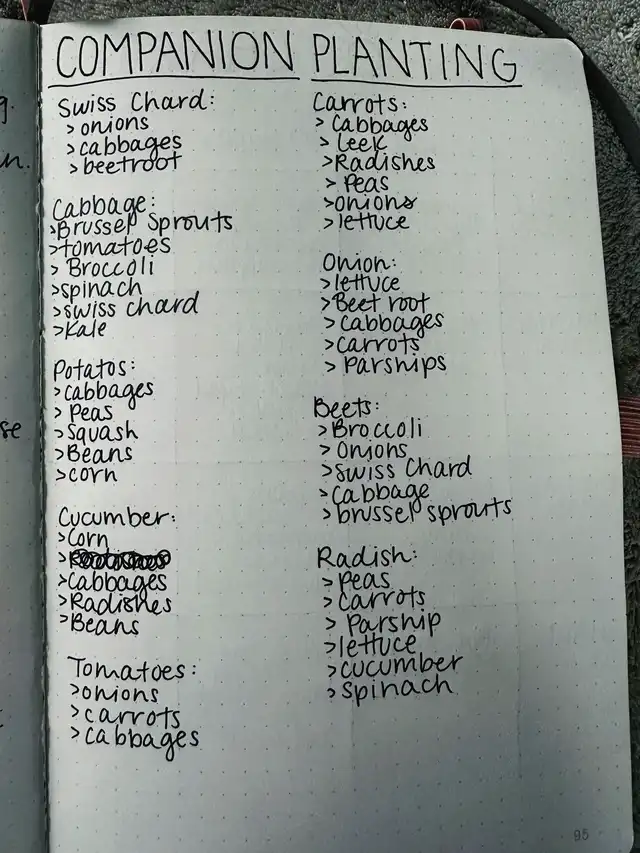 COMPANION PLANTING
Swiss Chard:
> onions
> cabbages
> beetroot
Cabbage:
> Brussel Sprouts
> tomatoes
> Broccoli
> spinach
> swiss chard
> Kale
Potatos:
> cabbages
> Peas
> Squash
> Beans
> corn
Cucumber:
> Corn
>
> Cabbages
> Radishes
> Beans
Tomatoes:
> onions
> carrots
> cabbages
Carrots:
> Cabbages
> Leek
> Radishes
> Peas
> onions
> lettuce
Onion:
> lettuce
> Beet root
> Cabbages
> carrots
> Parships
Beets:
> Broccoli
> Onions
> Swiss Chard
> Cabbage
> brussel sprouts
Radish:
> Peas
> Carrots
> Parship
> lettuce
> cucumber
> Spinach
95